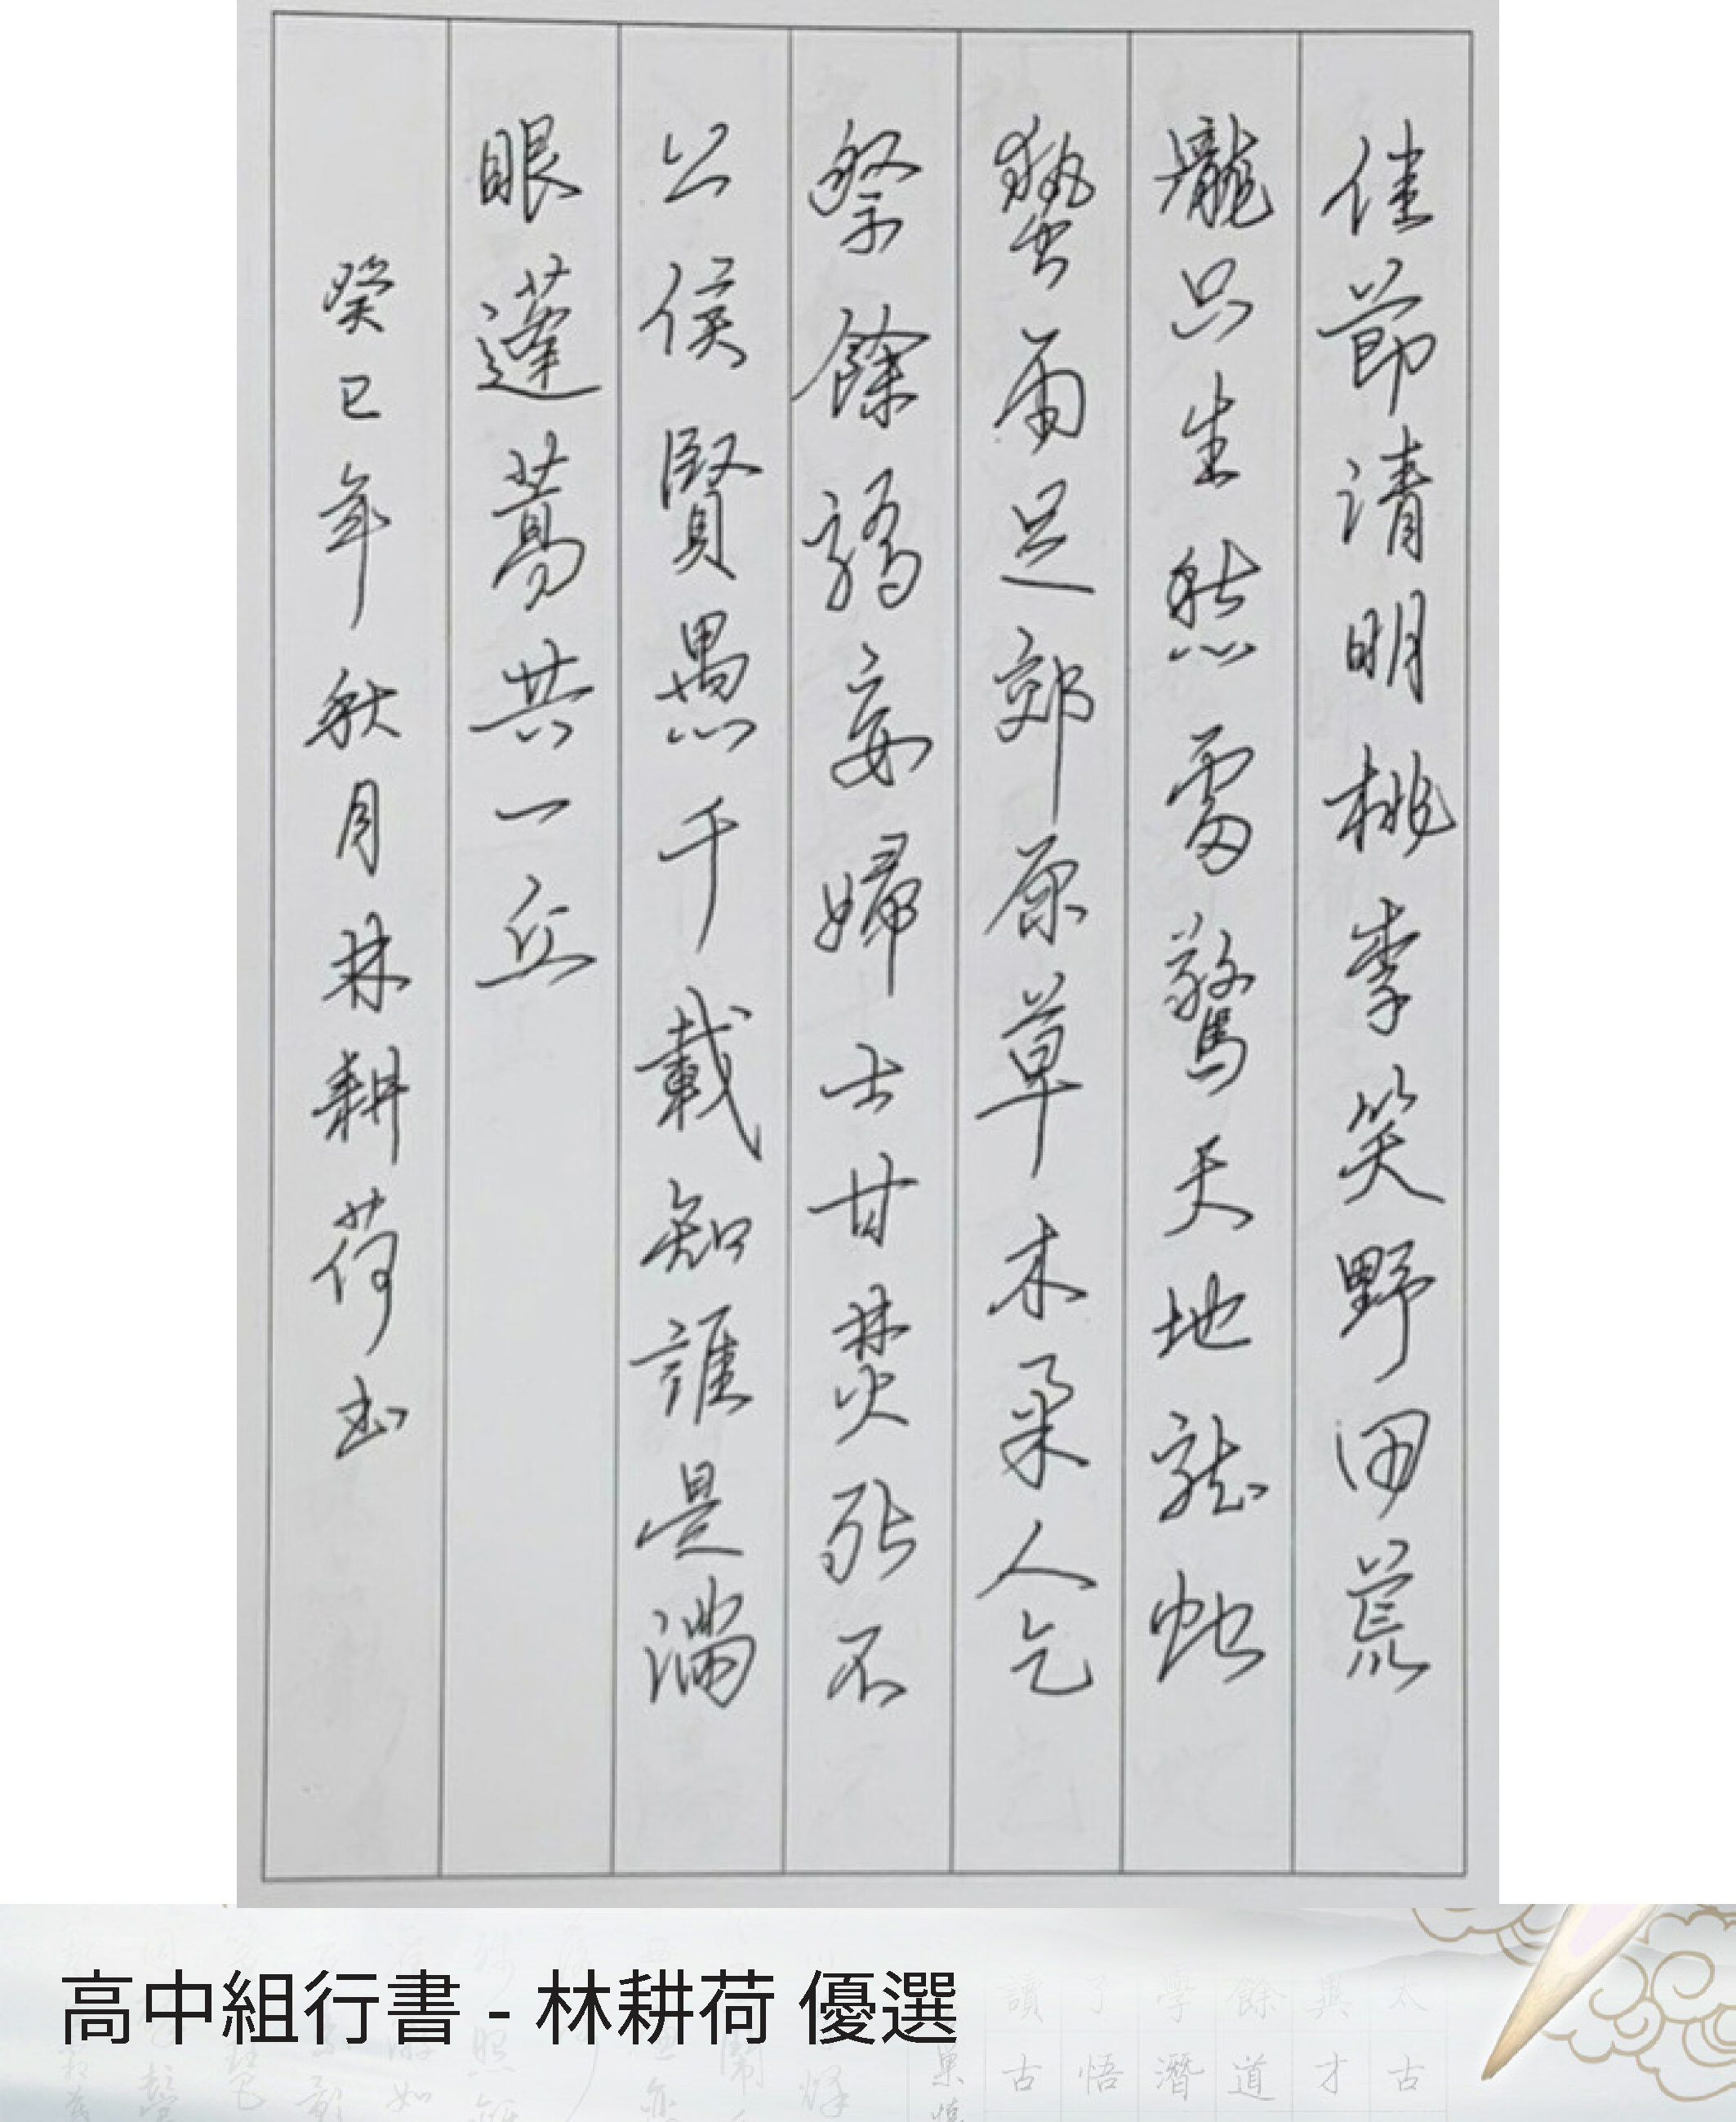 佳節清明桃李笑野田荒
壟只生愁雷驚天地龍蛇
蟄雨足郊原草木柔人乞
祭餘驕妾婦士甘焚死不
公侯賢愚千載知誰是滿
眼蓬蒿共一丘
癸巳年秋月林耕荷書
高中組行書 - 林耕荷 優選